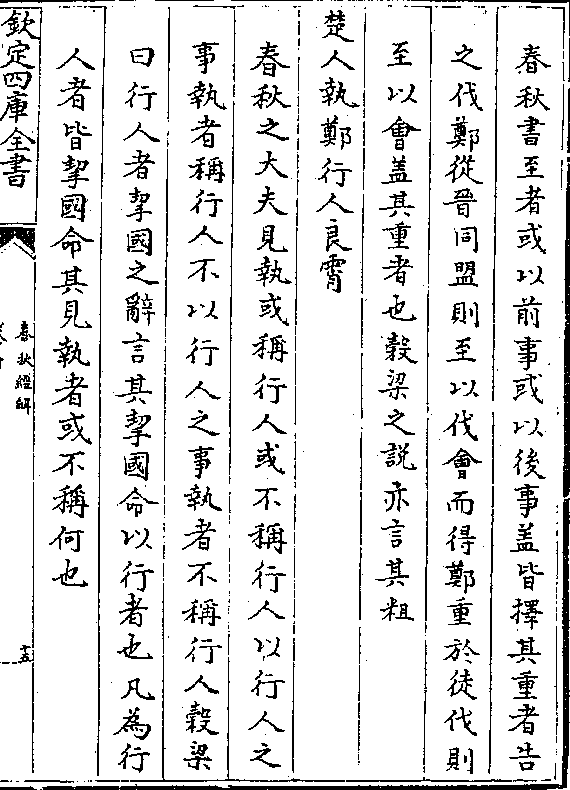 春秋書至者或以前事或以後事盖皆擇其重者告
之伐鄭從晉同盟則至以伐會而得鄭重於徒伐則
至以會盖其重者也穀梁之説亦言其粗
楚人執鄭行人良霄
春秋之大夫見執或稱行人或不稱行人以行人之
事執者稱行人不以行人之事執者不稱行人穀梁
曰行人者挈國之辭言其挈國命以行者也凡為行
人者皆挈國命其見執者或不稱何也
欽定四庫全書
春秋經解
十五